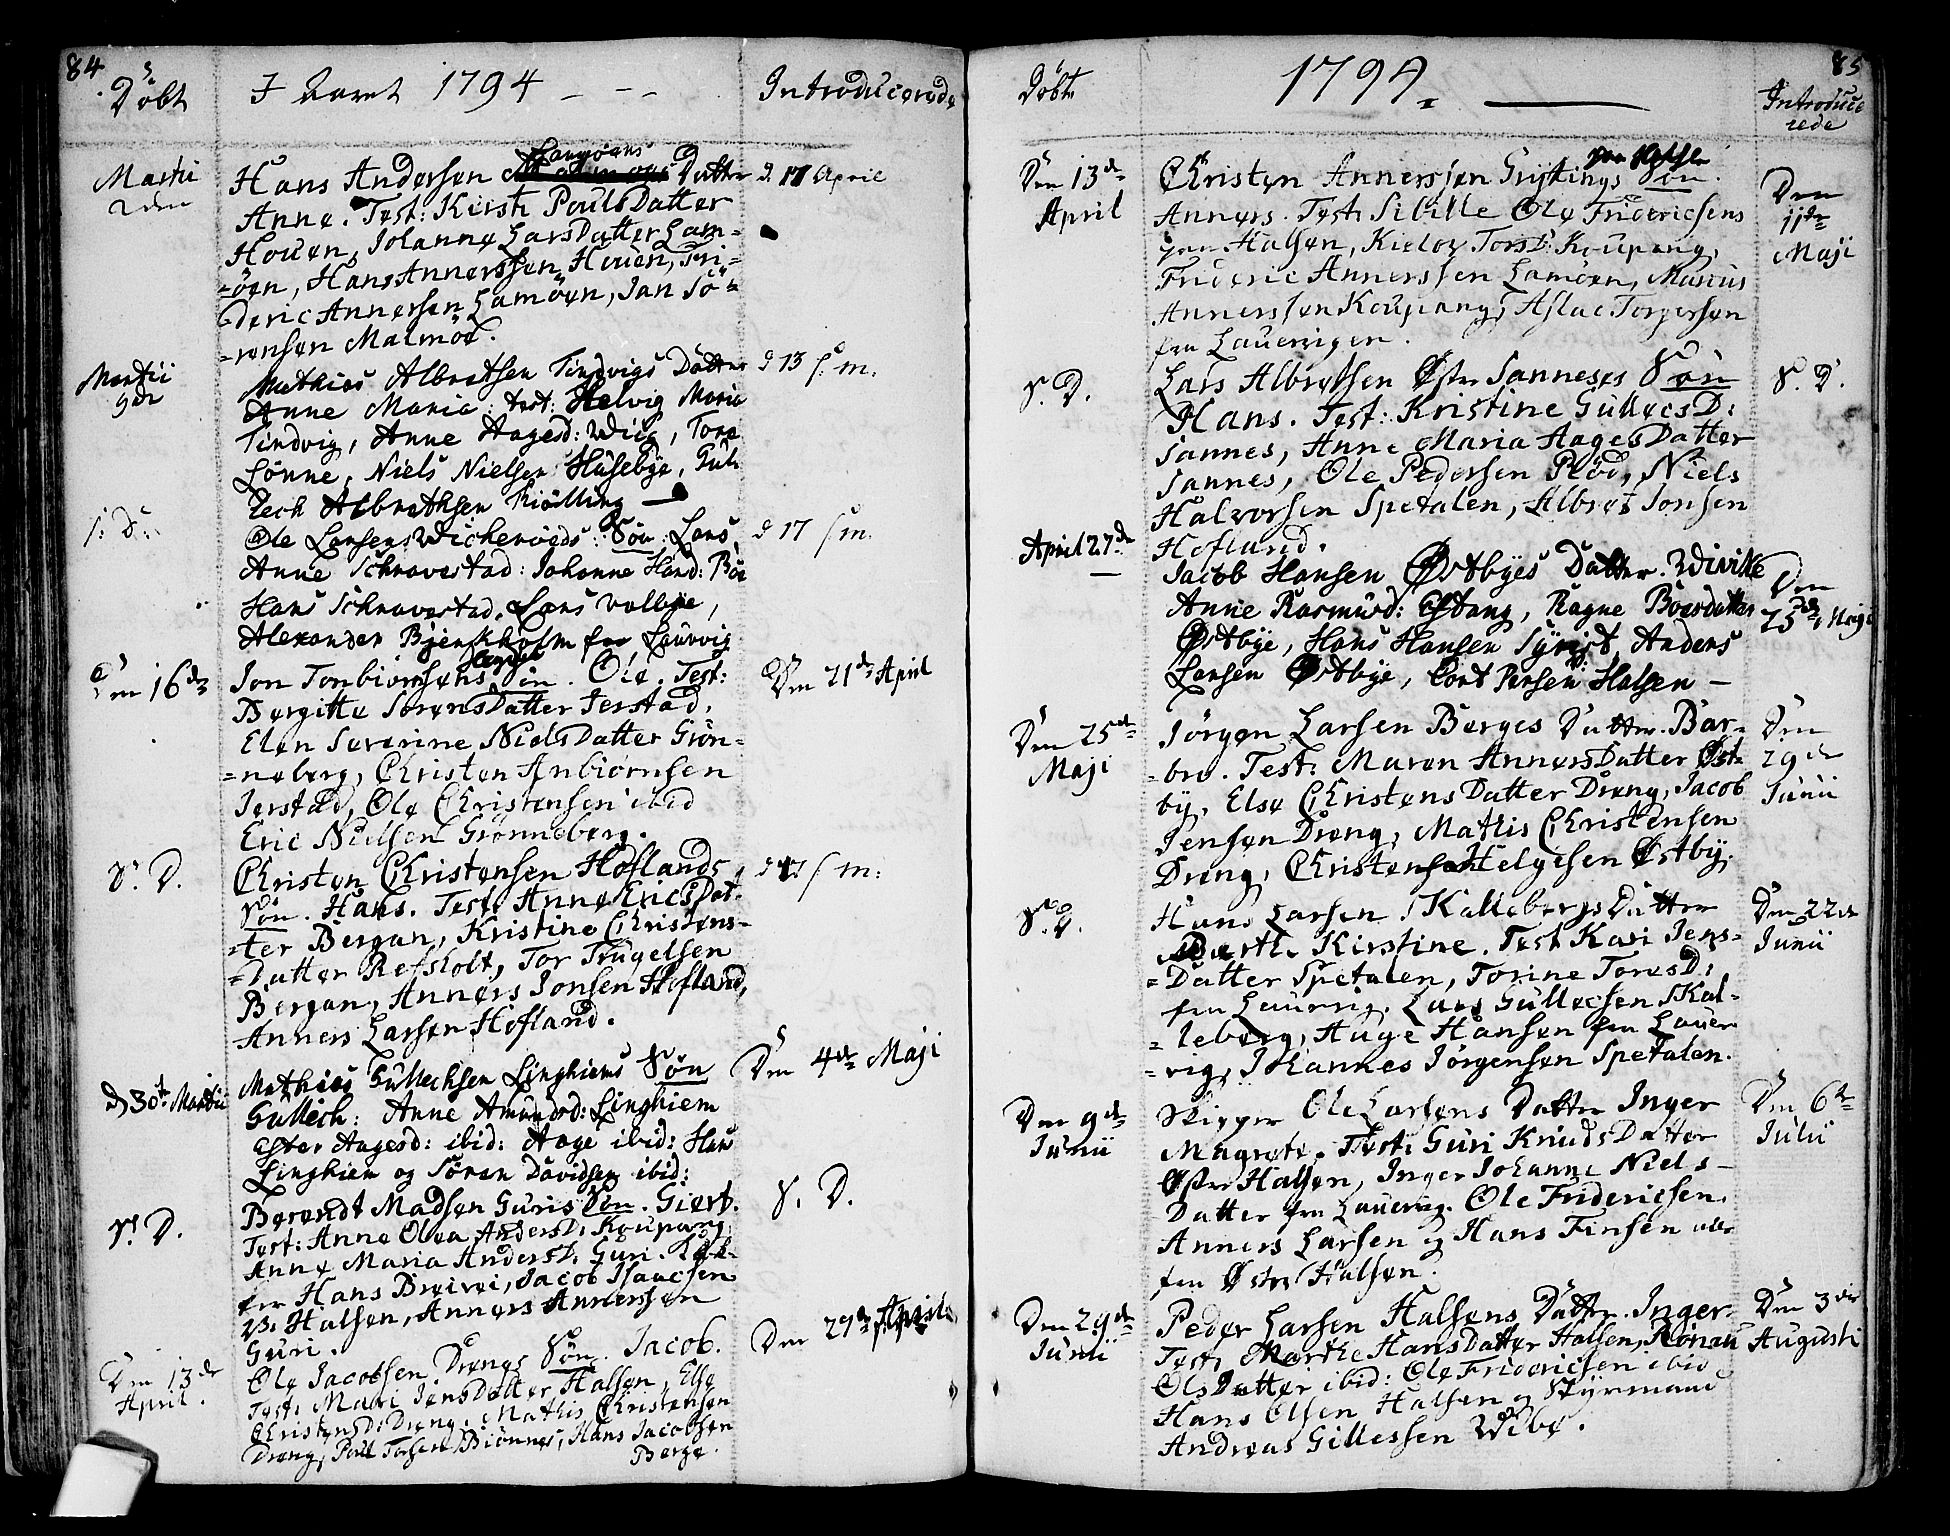 84
Döbt
I Aaret 1794 - - -
Introducerede
Martii
2den
Hans Andersen Lamöens Datter
d. 17 April
Anne. Test: Kirsti PoulsDatter
Houen, Johanne LarsDatter Lam=
=öen, Hans Annerssen Houen, Fri=
=deric Annersen Lamöen, Jan Sö=
=rensen Malmöe.
Martii
9de
Mathias Albretsen Tindvigs Datter
d 13 s. m.
Anne Maria: test: Helvig Maria
Tindvig, Anne Aagesd: Wiig, Tore
Lönne, Niels Nielsen Husebye, Gul=
lech Albrethsen Kiölling
s. D.
Ole Larsens Wicherveds: Sön: Lars
d 17 s m.
Anne Schravestad: Johanne Hansd: Böe
Hans Schravestad, Lars Valbye,
Alexander Bjenkholm fra Laurvig
Den 16de
Jon Tonbiörnsens Sön. Ole. Test:
Den 21de April
Bergitte SörensDatter Jerstad,
Elen Severine NielsDatter Grön=
=neberg, Christen Anbiörnsen
Jerstad, Ole Christensen ibid
Eric Nielsen Grönneberg.
S. D.
Christen Christensen Hoflands
d 17 s m:
Sön. Hans. Test: Anne EricsDat=
=ter Bergan, Kristine Christens=
=Datter Refsholt, Tor Trugelsen
Bergan, Anners Jonsen Hofland,
Anners Larsen Hofland.
d 30te Martii
Mathias Gullechsen Linghiems Sön
Den 4de Maji
Gullech: Anne Amundsd: Linghiem
Ester Aagesd: ibid: Aage ibid: Hans
Linghiem og Sören Davidsen ibid:
S. D.
Berendt Madsen Guris Sön. Giert.
S. D.
Test: Anne Olea AndersD: Koupang,
Anne Maria AndersD: Guri.
Hans Breivei, Jacob Isaacsen
Ø. Halsen, Anners Annerssen
Guri.
Den 13de
April.
Ole Jacobsen Drengs Sön. Jacob.
Den 27de April
Test: Mari JensDatter Halsen, Else
ChristensD: Dreng, Mathis Christensen
Dreng, Poul Torsen Biönnes, Hans Jacobsen
Berge.
85
Döbte
1794.
Introduce
rede
Den 13de
April
Christen Annerssen Gristings Sön.
fra Halsen
Den
11te
Maji
Anners. Test: Sibille Ole Fridericsens
fra Halsen, Kieloy TorsD: Koupang,
Frideric Annerssen Lamöen, Marcus
Annerssen Koupang, Aslac Torgersen
fra Lauervigen.
S. D.
Lars Albretsen Øster Sanneses Sön
S. D.
Hans. Test: Kristine GullecsD:
Sannes, Anne Maria AagesDatter
Sannes, Ole Pedersen Röd, Niels
Halvorsen Spetalen, Albret Jonsen
Hofland.
April 27de
Jacob Hansen Østbyes Datter. Wivike
Den
25de Maji
Anne Rasmusd: Østang, Ragne BoersDatter
Østbye, Hans Hansen Syrist, Anders
Larsen Østbye, Cort Pensen Halsen -
Den 25de
Maji
Jörgen Larsen Berges Datter. Bar=
Den
29de
Junii
=bro. Test: Maren AnnersDatter Øst=
by, Else ChristensDatter Dreng, Jacob
Jensen Dreng, Mathis Christensen
Dreng, Christen Helgesen Østby.
S. D.
Hans Larsen SKallebergs Datter
Den 22de
Junii
Barthe Kirstine. Test: Kari Jens=
=Datter Spetalen, Torine ToresD:
fra Laurvig. Lars Gullecsen SKal=
=leberg, Auge Hansen fra Lauer
=vig, Johannes Jörgensen Spetalen.
Den 9de
Junii
Skipper Ole Larsens Datter Inger
Den 6te
Julii
Magrete. Test: Guri KnudsDatter
Østre Halsen, Inger Johanne Niels=
Datter fra Lauervig. Ole Fridericsen.
Anners Larsen og Hans Finsen alle
fra Østre Halsen.
Den 29de
Junii
Peder Larsen Halsens Datter. Inger.
Den 3die
Augusti
Test: Marthe HansDatter Halsen, Ronau
OlsDatter ibid: Ole Fridericsen ibid
Hans Olsen Halsen og Styrmand
Andreas Gillessen Wibe.